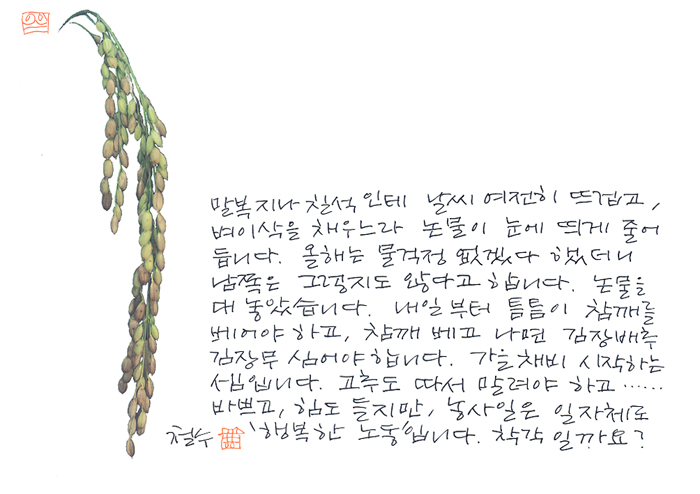 말복 지나 칠석인데 날씨 여전히 뜨겁고,
벼이삭을 채우느라 논물이 눈에 띄게 줄어
듭니다. 올해는 물걱정 없겠다 했더니
남쪽은 그렇지도 않다고 합니다. 논물을
대 놓았습니다. 내일부터 틈틈이 참깨를
베어야 하고, 참깨 베고 나면 김장배추
김장무 심어야 합니다. 가을채비 시작하는
셈입니다. 고추도 따서 말려야 하고……
바쁘고, 힘도 들지만, 농사일은 일자체로
철수 '행복한 노동'입니다. 착각일까요?